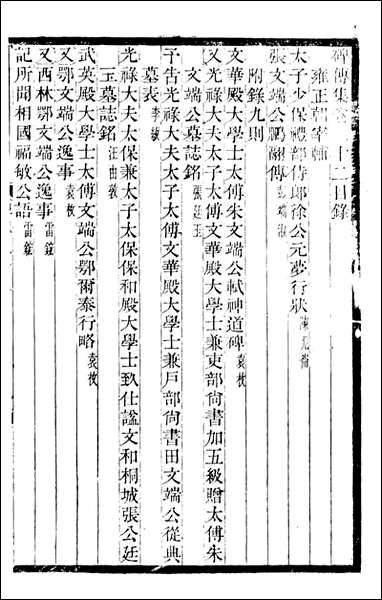 碑傳集卷二十二目錄
雍正朝宰輔
太子少保禮部侍郎徐公元夢行狀
張文端公鵬翮傳 彭端淑
附錄九則
文華殿大學士太傅朱文端公軾神道碑 袁枚
又光祿大夫太子太傅文華殿大學士兼吏部尚書加五級贈太傅朱
文端公墓誌銘 張廷玉
予告光祿大夫太子太傅文華殿大學士兼戶部尚書田文端公從典
墓表 李紱
光祿大夫太保兼太子太保保和殿大學士致仕諡文和桐城張公廷
玉墓誌銘 汪由敦
武英殿大學士太傅文端公鄂爾泰行略 袁枚
又鄂文端公逸事 袁枚
又西林鄂文端公逸事 雷鋐
記所聞相國福敏公語 雷鋐